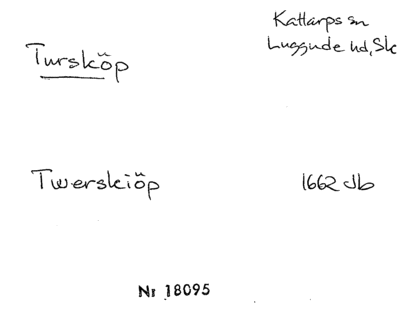 Turskӧp
Kattarps sn
Luggude hd, Sk
Twerskiöp
1662 Jb
Nr 18095